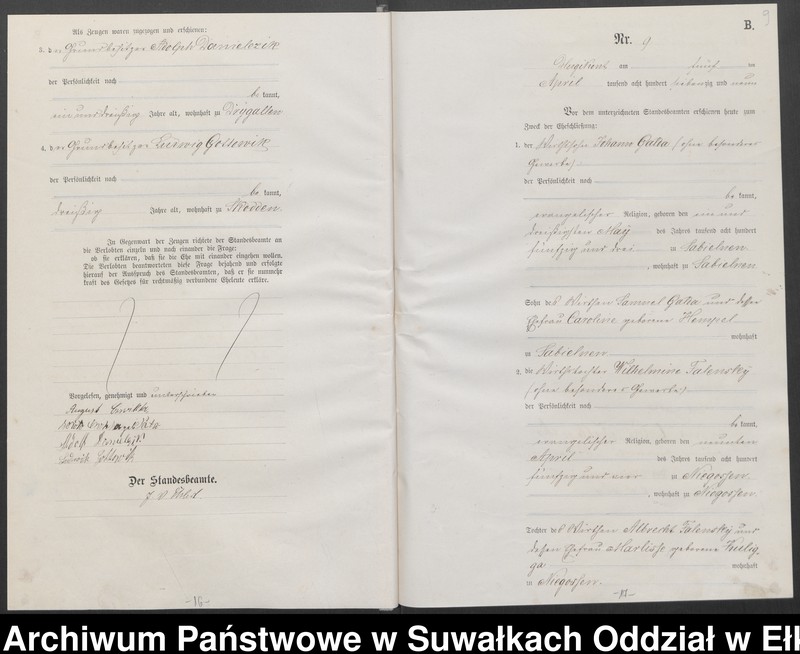 Als Zeugen waren zugezogen und erschienen:
3. der Grundbesitzer Adolph Danielczik
der Persönlichkeit nach
be kannt,
einunddreißig Jahre alt, wohnhaft zu Drygallen
4. der Grundbesitzer Ludwig Gollowik
der Persönlichkeit nach
be kannt,
dreißig Jahre alt, wohnhaft zu Skodden
In Gegenwart der Zeugen richtete der Standesbeamte an
die Verlobten einzeln und nach einander die Frage:
ob sie erklären, daß sie die Ehe mit einander eingehen wollen.
Die Verlobten beantworteten diese Frage bejahend und erfolgte
hierauf der Ausspruch des Standesbeamten, daß er sie nunmehr
kraft des Gesetzes für rechtmäßig verbundene Eheleute erkläre.
Vorgelesen, genehmigt und unterschrieben
August
Ludwik
Der Standesbeamte.
-16-
9
B.
Nr. 9
am fünf ten
April tausend acht hundert siebenzig und neun
Vor dem unterzeichneten Standesbeamten erschienen heute zum
Zweck der Eheschließung:
1. der Wirthssohn Johann Galla (ohne besonderes
Gewerbe)
der Persönlichkeit nach
be kannt,
evangelischer Religion, geboren den ein und
dreißigsten May des Jahres tausend acht hundert
fünfzig und drei zu Sabielnen
, wohnhaft zu Sabielnen
Sohn des Wirthen Samuel Galla und dessen
Ehefrau Caroline geborene Hempel
wohnhaft
zu Sabielnen
2. die Wirthstochter Wilhelmine Falensky
(ohne besonderes Gewerbe)
der Persönlichkeit nach
be kannt,
evangelischer Religion, geboren den neunten
April des Jahres tausend acht hundert
fünfzig und vier zu Niegossen
, wohnhaft zu Niegossen
Tochter des Wirthen Albrecht Falensky und
dessen Ehefrau Marlisse geborene
ga wohnhaft
in Niegossen.
-17-
Archiwum Państwowe w Suwałkach Oddział w Ełk